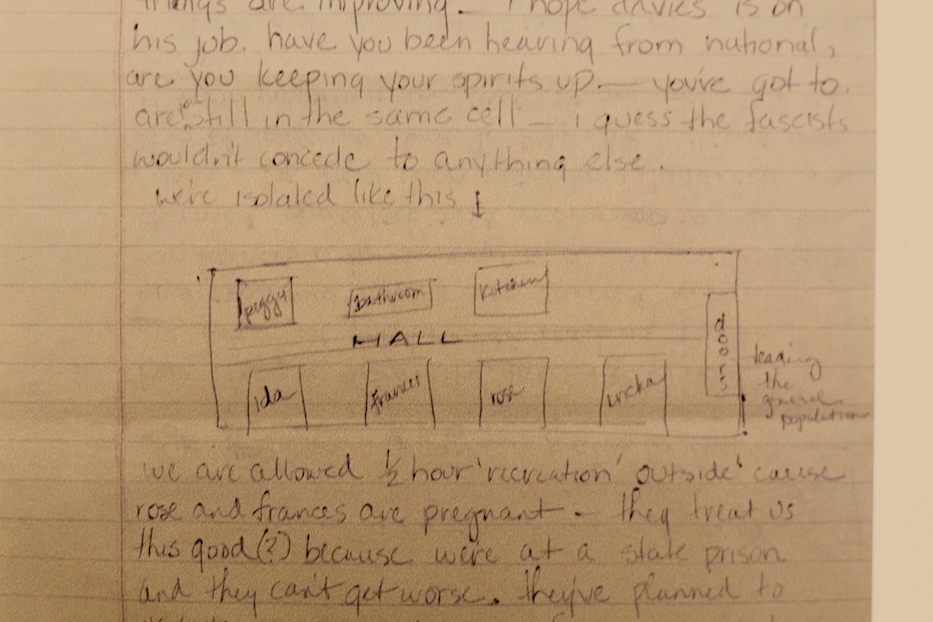 things are improving — i hope davies is on
his job. have you been hearing from national,
are you keeping your spirits up — you've got to.
are you still in the same cell — i guess the fascists
wouldn't concede to anything else.
we're isolated like this ↓
peggy bathroom kitchen
HALL
doors
ida frances rose ericka
leading
the
general
population
we are allowed ½ hour 'recreation' outside 'cause
rose and frances are pregnant — they treat us
this good(?) because we're at a state prison
and they can't get worse. they've planned to